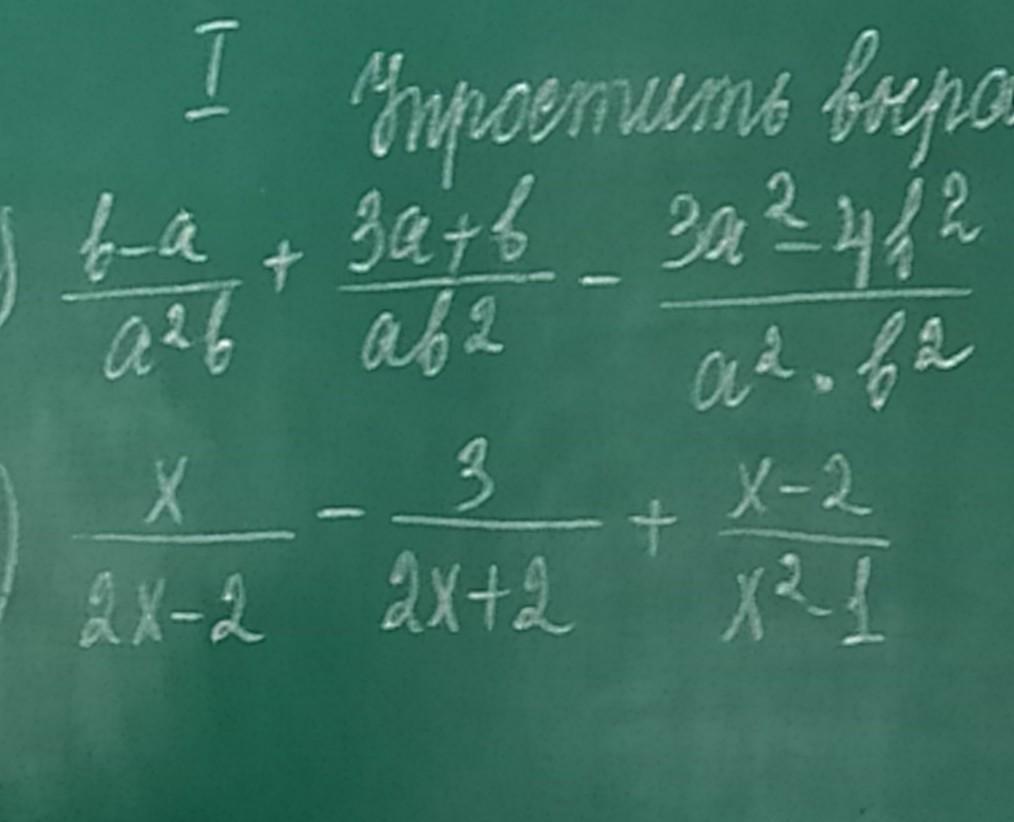 I Упростить выра
) (b-a)/(a²b) + (3a+b)/(ab²) - (3a²-4b²)/(a²·b²)
) x/(2x-2) - 3/(2x+2) + (x-2)/(x²-1)